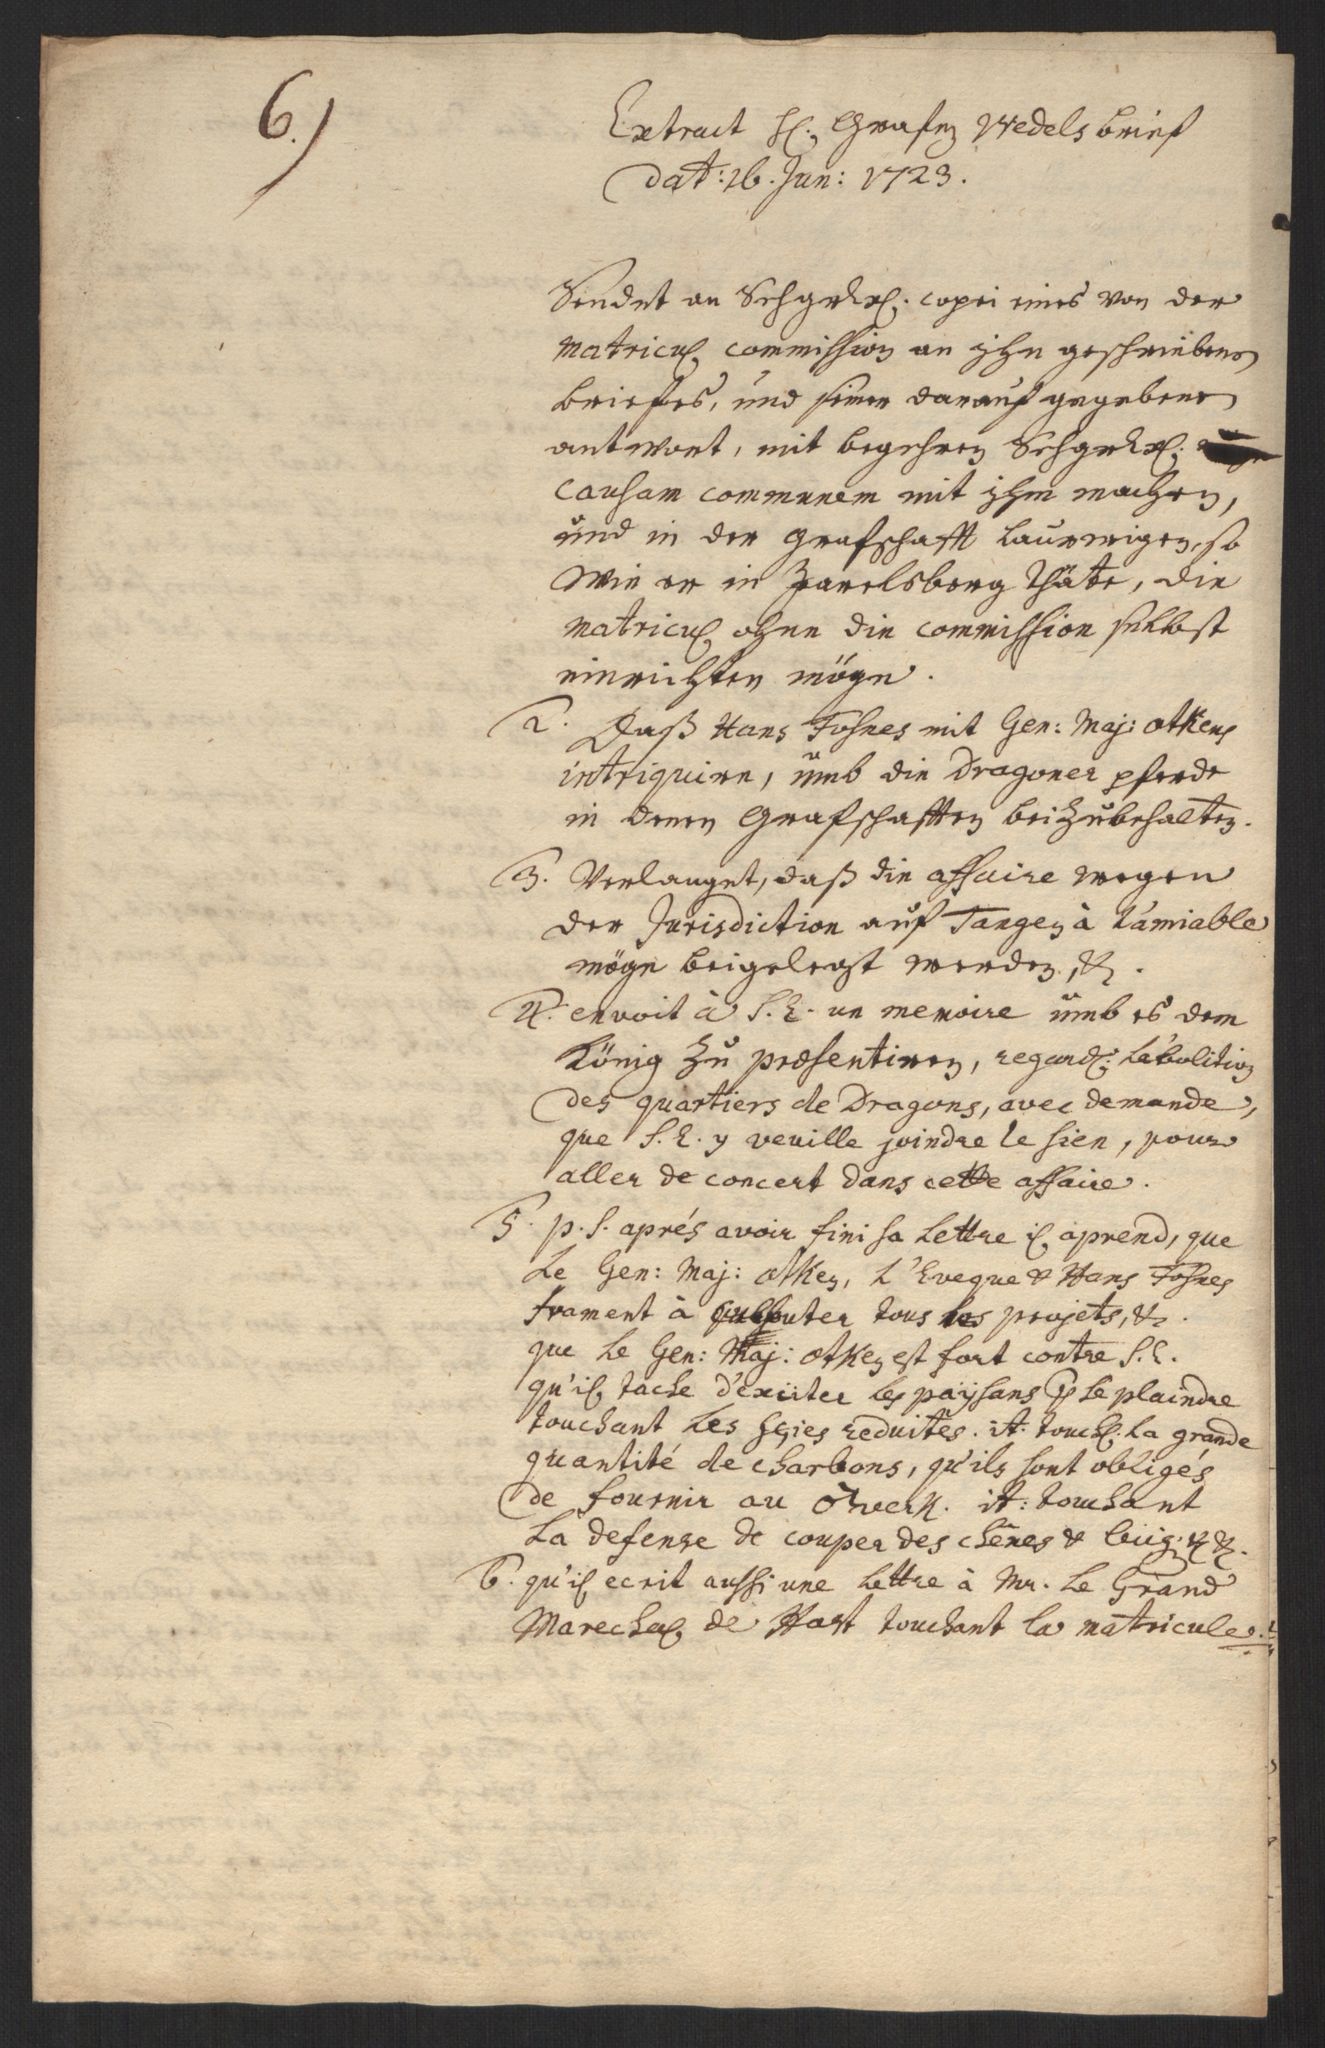 6.)
Extract H. Grafen Wedels brief
dat: 16. Jun: 1723.
Sendet an Sehgrhx. copei eines von der
matricul commission an ihn geschriebenen
briefes, und seiner darauf gegebenen
antwort, mit begehren Sehgrhx.
causam communem mit ihm machen,
und in der Grafschafft Laurwigen, so
wie er in Jarelsberg thäte, die
matricul ohne die commission selbst
einrichten möge.
2. Daß Hans Fosnes mit Gen: Maj: Otken
intriquire, umb die Dragoner pferde
in denen Grafschafften beizubehalten.
3. Verlanget, daß die affaire wegen
der Jurisdiction auf Tangen à l'amiable
möge beigelegt werden, &c.
4. envoit à S. E. un memoire umb es dem
König zu præsentiren, regard: l'ebolition
des quartiers de Dragons, avec demande,
que S. E. y veuille joindre le sien, pour
aller de concert dans cette affaire.
5. p. S. aprés avoir fini sa lettre il aprend, que
le Gen: Maj: Otken, l'Eveque & Hans Fosnes
trament à culbuter tous les projets, &c.
que le Gen: Maj: Otken est fort contre S. E.
qu'il tache d'exciter les paÿsans à se plaindre
touchant les scies reduites. it. touch: la grande
quantité de charbons, qu'ils sont obligés
de fournir au werk. it: touchant
la defense de couper des chênes &
6. qu'il ecrit aussi une lettre à Mr. le Grand
Marechal de Hast touchant la matricule.